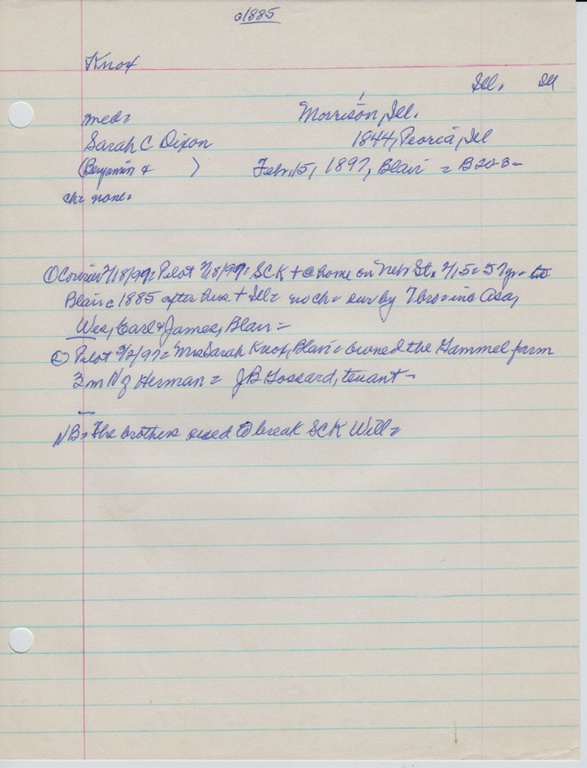 c1885
Knox
Ill. Ill
med= Morrison, Ill.
Sarah C Dixon 1844, Peoria, Ill
(Benjamin & ) Feb. 15, 1897, Blair = B20-3-
ch= none=
① Courier 2/18/97= Pilot 2/18/97= SCK + @ home on Neb St. 2/15= 57 yr= to
Blair c1885 after hus + Ill= no ch= sur by 4 bros in Asa,
Wes, Earl & James, Blair=
② Pilot 3/2/97= Mrs Sarah Knox, Blair= owned the Gammel farm
3 m N of Herman = JB Gossard, tenant -
NB= The brothers sued to break SCK Will=